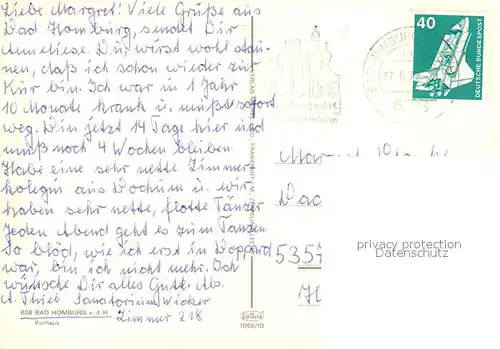 Liebe Margret! Viele Grüße aus
Bad Homburg, sendet Dir
Anneliese. Du, wirst wohl stau-
nen, daß ich schon wieder zur
Kur bin. Ich war in 1 Jahr
10 Monate krank u. mußte sofort
weg. Bin jetzt 14 Tage hier und
muß noch 4 Wochen bleiben.
Habe eine sehr nette Zimmer
kolegin aus Bochum u. wir
haben sehr nette, flotte Tänzer
Jeden Abend geht es zum Tanzen.
So blöd, wie ich erst in Boppard
war, bin ich nicht mehr. Ich
wünsche Dir alles Gute. Abs.
A. Thiel Sanatorium Wicker
Zimmer 218
638 BAD HOMBURG v. d. H
Kurhaus
1056/10
40
DEUTSCHE BUNDESPOST
535
privacy protection
Datenschutz